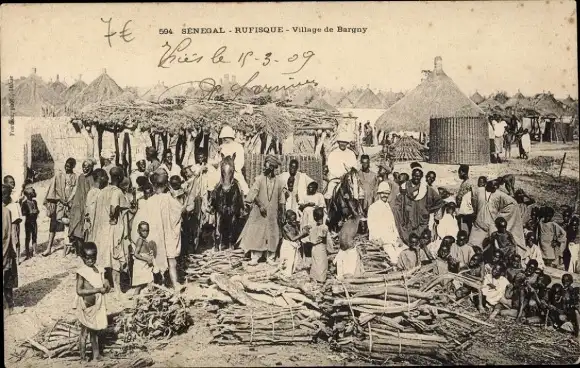 7€
594 SÉNÉGAL - RUFISQUE - Village de Bargny
Thiès le 15-3-09